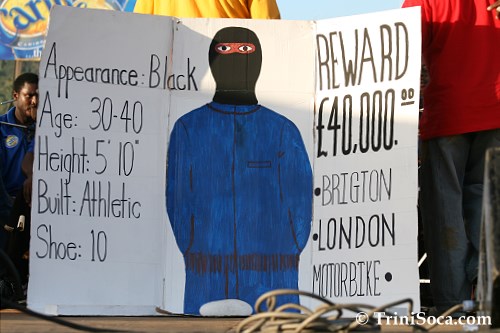 Carib
Appearance: Black
Age: 30-40
Height: 5' 10"
Built: Athletic
Shoe: 10
REWARD
£40,000.00
•BRIGTON
•LONDON
MOTORBIKE•
© TriniSoca.com